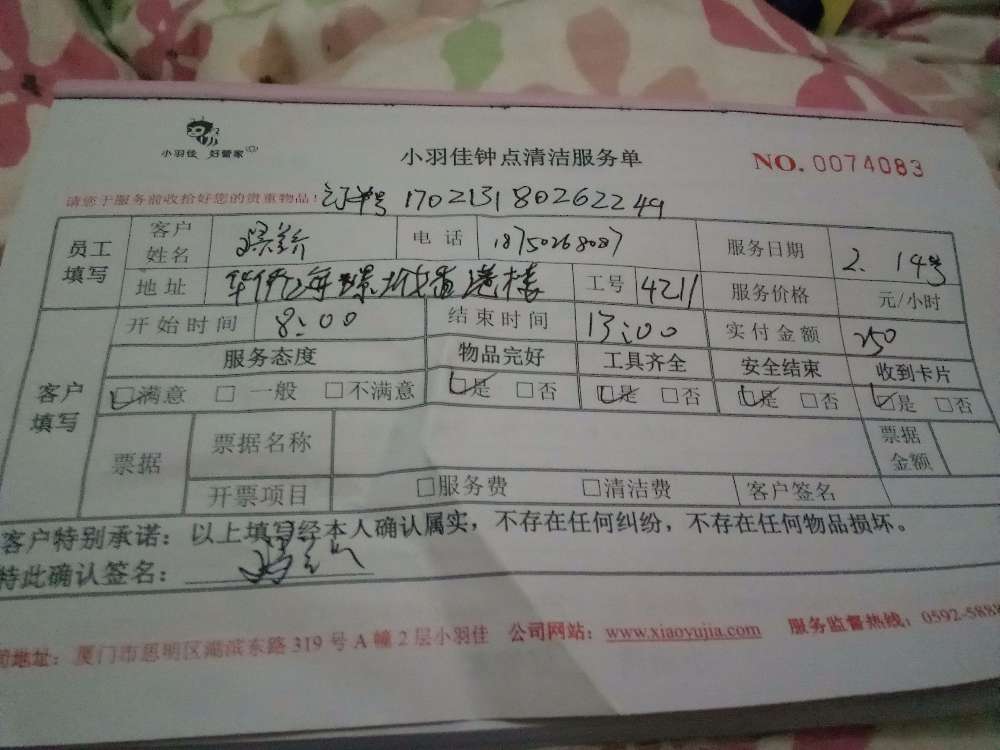 小羽佳 好管家
小羽佳钟点清洁服务单
NO. 0074083
请您于服务前收拾好您的贵重物品! 订单号 170213180262249
员工填写 客户姓名 电话 18750268087 服务日期 2. 14号
地址 华侨海景城香港楼 工号 4211 服务价格 元/小时
客户填写 开始时间 8:00 结束时间 13:00 实付金额 250
服务态度 物品完好 工具齐全 安全结束 收到卡片
□满意 □一般 □不满意 □是 □否 □是 □否 □是 □否 □是 □否
票据 票据名称 票据金额
开票项目 □服务费 □清洁费 客户签名
客户特别承诺:以上填写经本人确认属实,不存在任何纠纷,不存在任何物品损坏。
特此确认签名:
地址:厦门市思明区湖滨东路319号A幢2层小羽佳 公司网站:www.xiaoyujia.com 服务监督热线:0592-5888